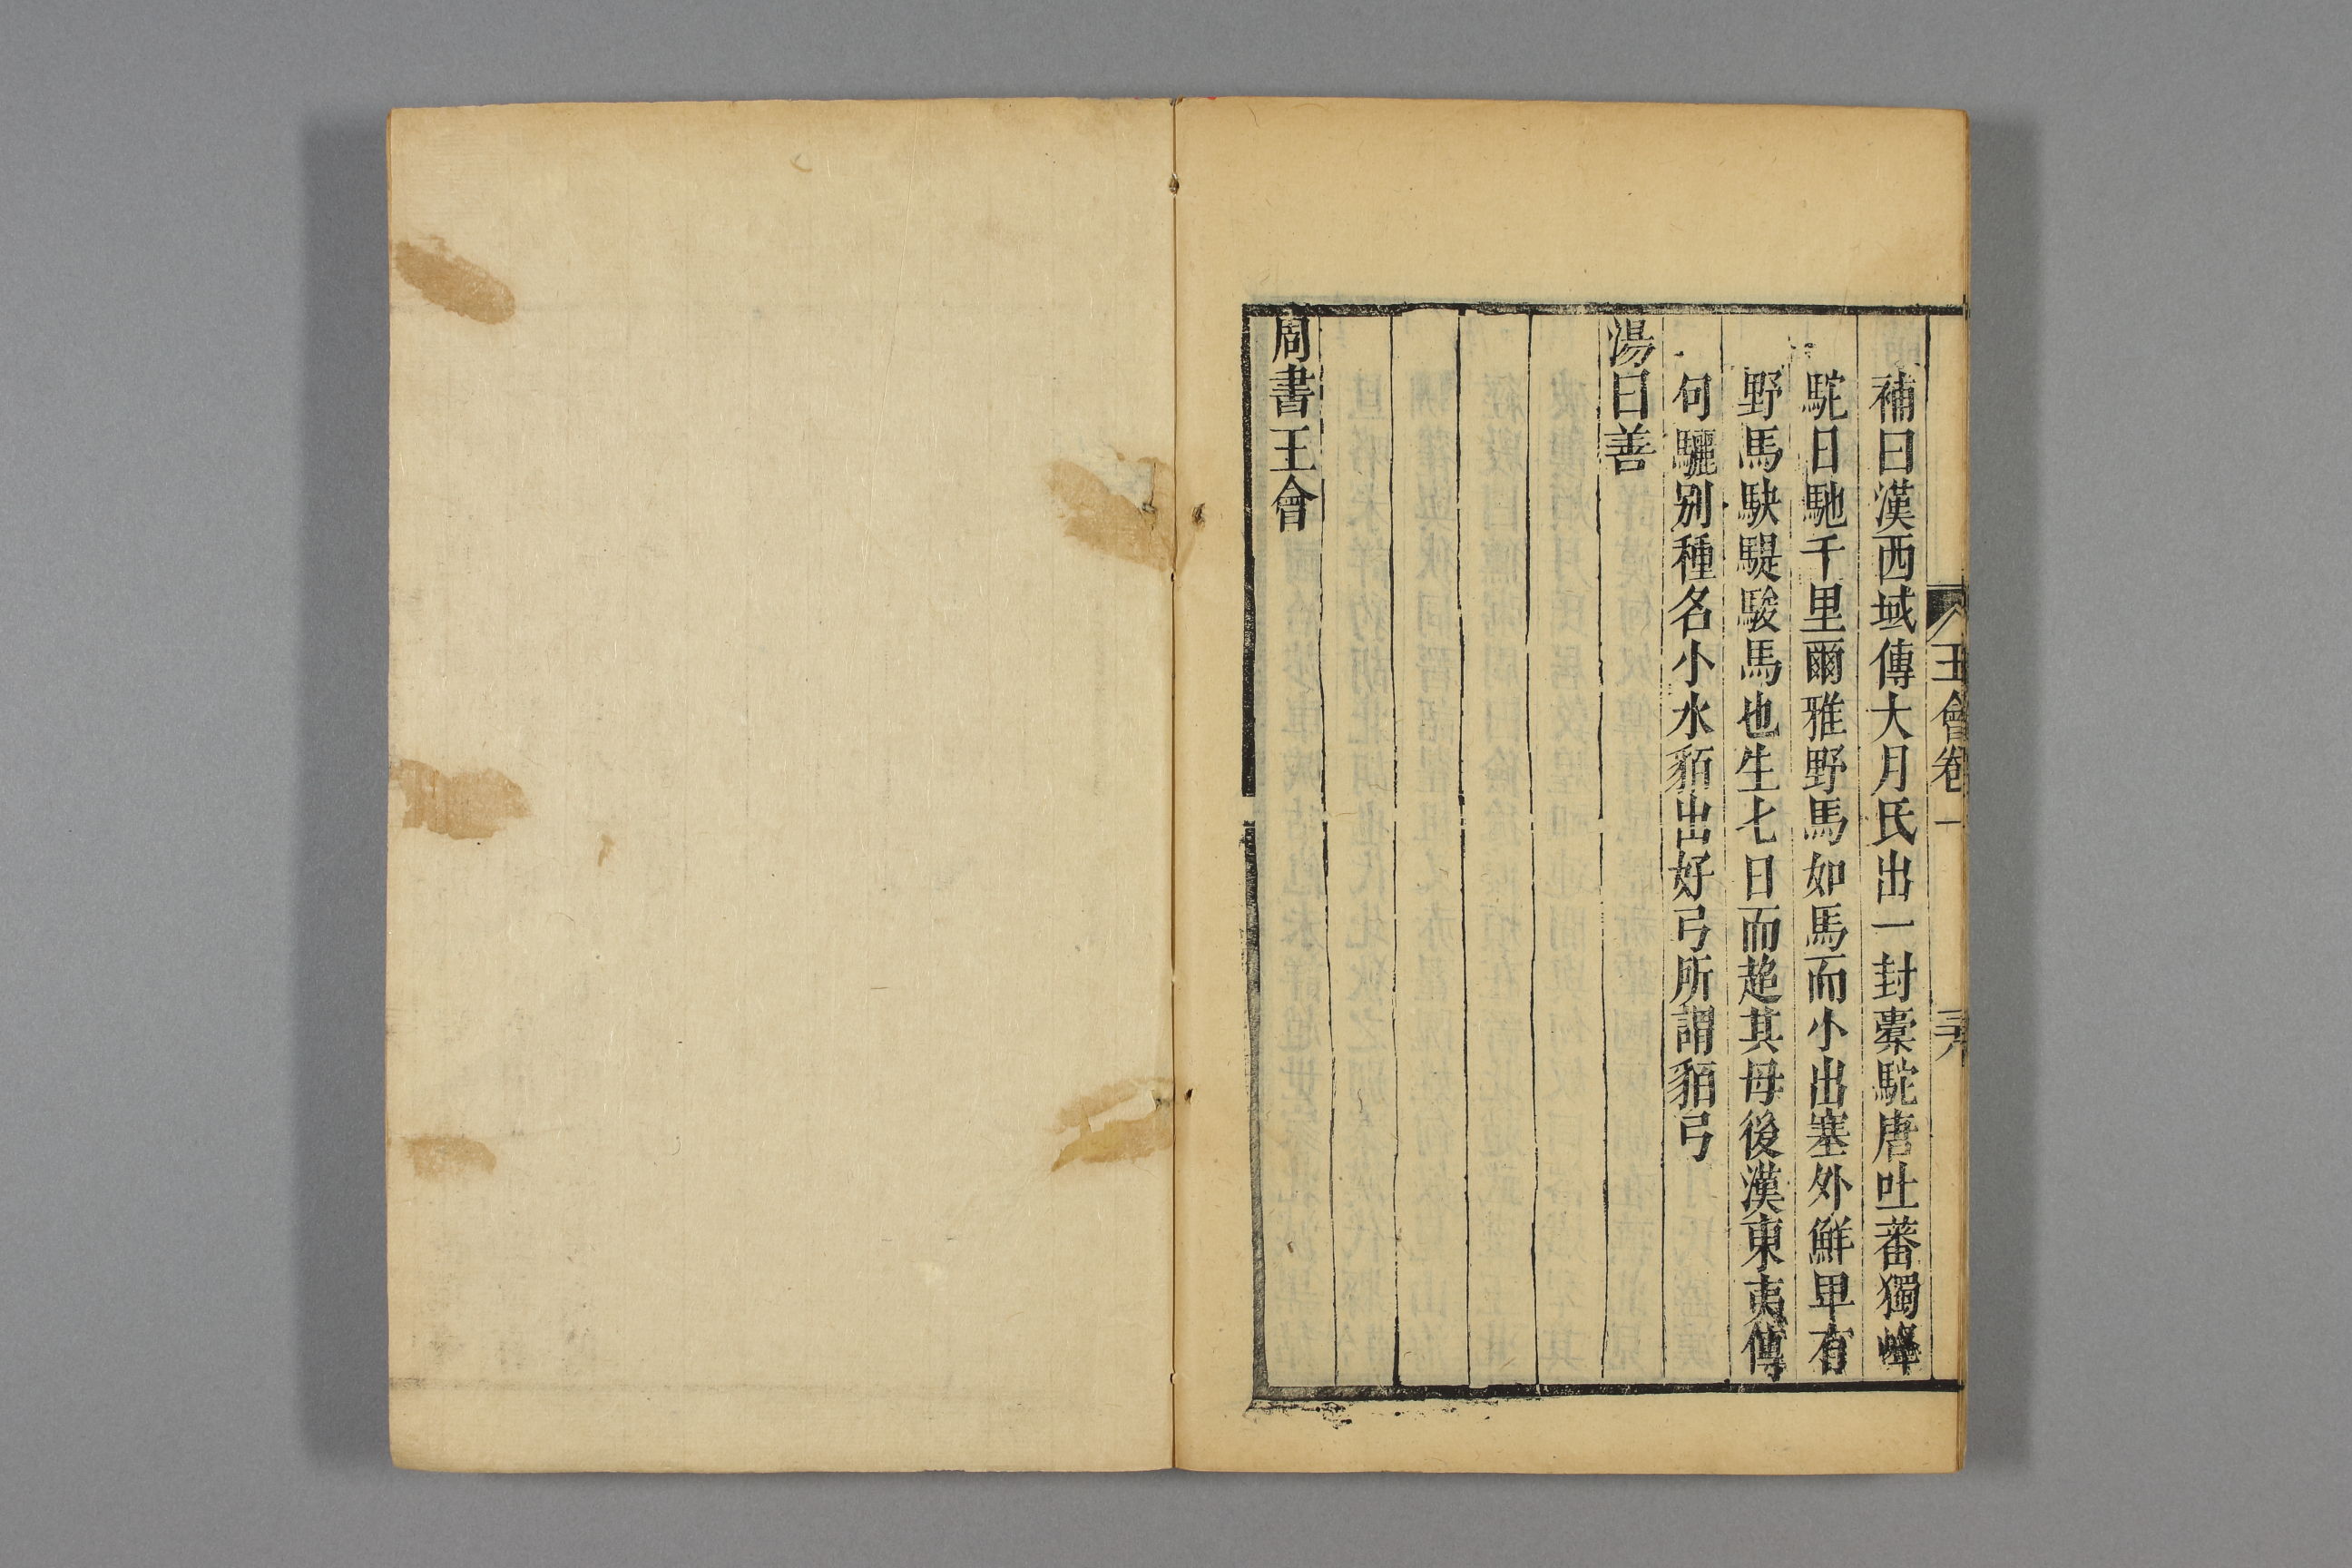 王會卷一
三十八
補曰漢西域傳大月氏出一封橐駝唐吐蕃獨峰
駝日馳千里爾雅野馬如馬而小出塞外鮮卑有
野馬駃騠駿馬也生七日而超其母後漢東夷傳
句驪别種名小水貊出好弓所謂貊弓
湯曰善
周書王會